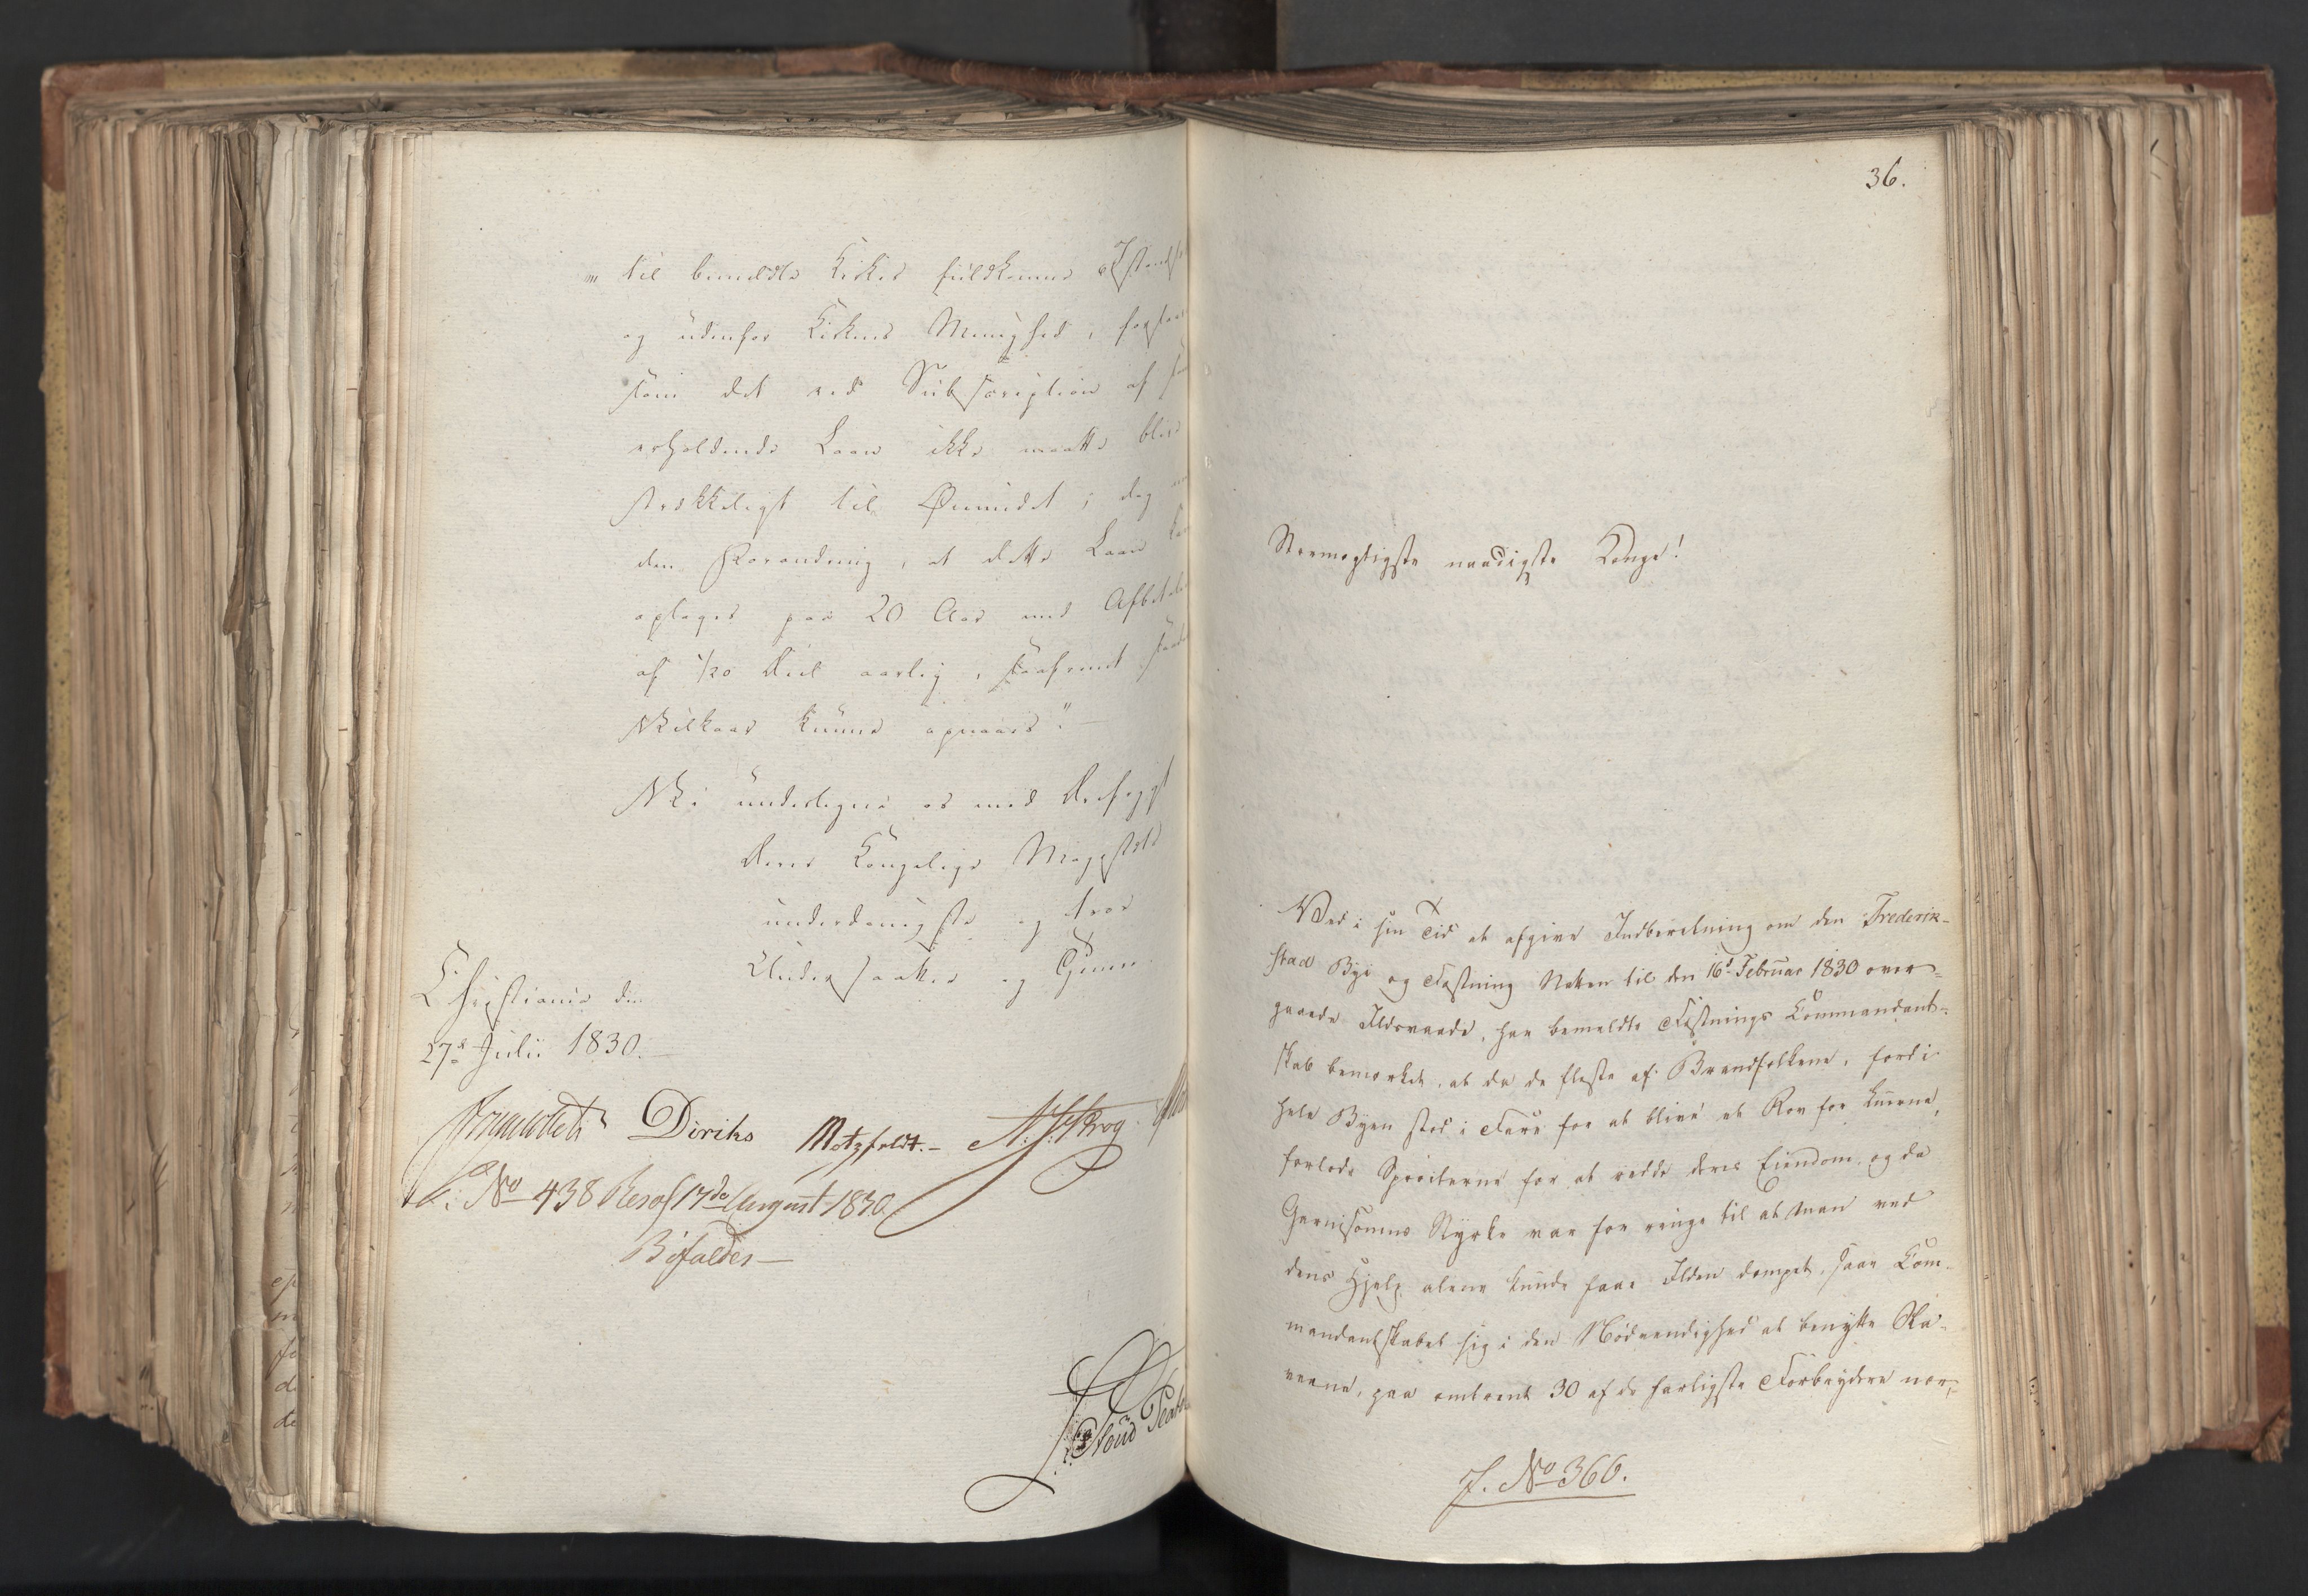 "" til bemeldte Kirkes fuldkomne Istands
og udenfor Kirkens Menighed,
som det ved Subscription af
erholdende Laan ikke maatte blive
strækkeligt til Øiemedet; dog
den Forandring, at dette Laan
optages paa 20 Aar med Afbetal
af 1/20 Deel aarlig, saafremt saad
Vilkaar kunne opnaaes".
Vi undertegne os med dybeste
Deres Kongelige Majestæts
underdanigste og troe
Undersaatter og
Christiania den
27de Julii 1830.
Diriks Motzfeldt.
No 438 Resol 17de August 1830
Bifaldes
36.
Stormægtigste naadigste Konge!
Ved i sin Tid at afgive Indberetning om den Frederik-
stad Bye og Fæstning Natten til den 16de Februar 1830 over-
gaaede Ildsvaade, har bemeldte Fæstnings Commandant-
skab bemærket, at da de fleste af Brandfolkene, fordi
hele Byen stod i Fare for at blive et Rov for Luerne,
forlode Sprøiterne for at redde deres Eiendom, og da
Garnisonens Styrke var for ringe til at man ved
dens Hjelp alene kunde faae Ilden dempet, saae Com-
mandantskabet sig i den Nødvendighed at benytte Sla-
verne, paa omtrent 30 af de farligste Forbrydere nær,
J. No 366.